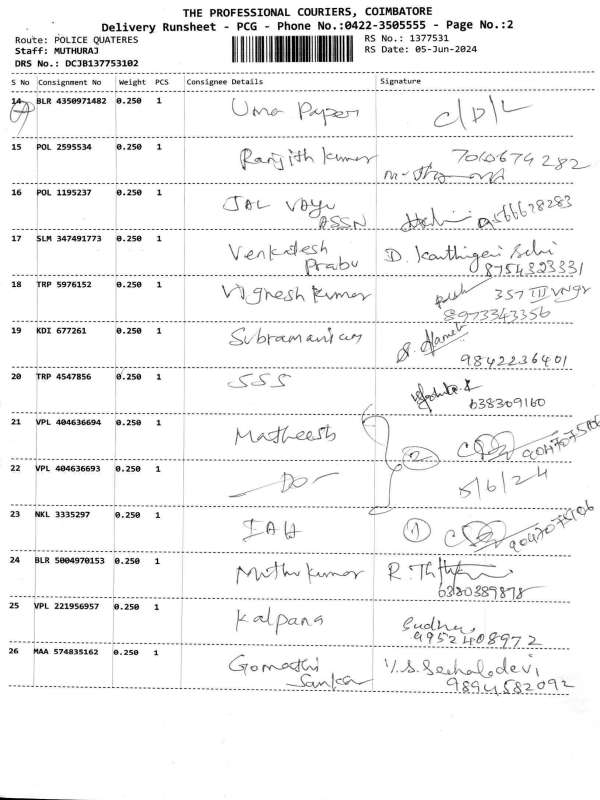 THE PROFESSIONAL COURIERS, COIMBATORE
Delivery Runsheet - PCG - Phone No.:0422-3505555 - Page No.:2
Route: POLICE QUATERES RS No.: 1377531
Staff: MUTHURAJ RS Date: 05-Jun-2024
DRS No.: DCJB137753102
S No Consignment No Weight PCS Consignee Details Signature
14 BLR 4350971482 0.250 1 Uma Paper C/D/L
15 POL 2595534 0.250 1 Ranjith kumar 7010674282
16 POL 1195237 0.250 1 JAL VAYU
ASSN 9566678283
17 SLM 347491773 0.250 1 Venkatesh
Prabu D. Karthigai Selvi
8754323331
18 TRP 5976152 0.250 1 Vignesh kumar 357 III
8973343356
19 KDI 677261 0.250 1 Subramaniam S.
9842236401
20 TRP 4547856 0.250 1 SSS
638309160
21 VPL 404636694 0.250 1 Matheesh 2
22 VPL 404636693 0.250 1 -DO- 5/6/24
23 NKL 3335297 0.250 1 IAH 1
24 BLR 5004970153 0.250 1 Muthu kumar R.
6380389878
25 VPL 221956957 0.250 1 Kalpana Sudha
9952408972
26 MAA 574835162 0.250 1 Gomathi
Sankar V.S.
9894582092